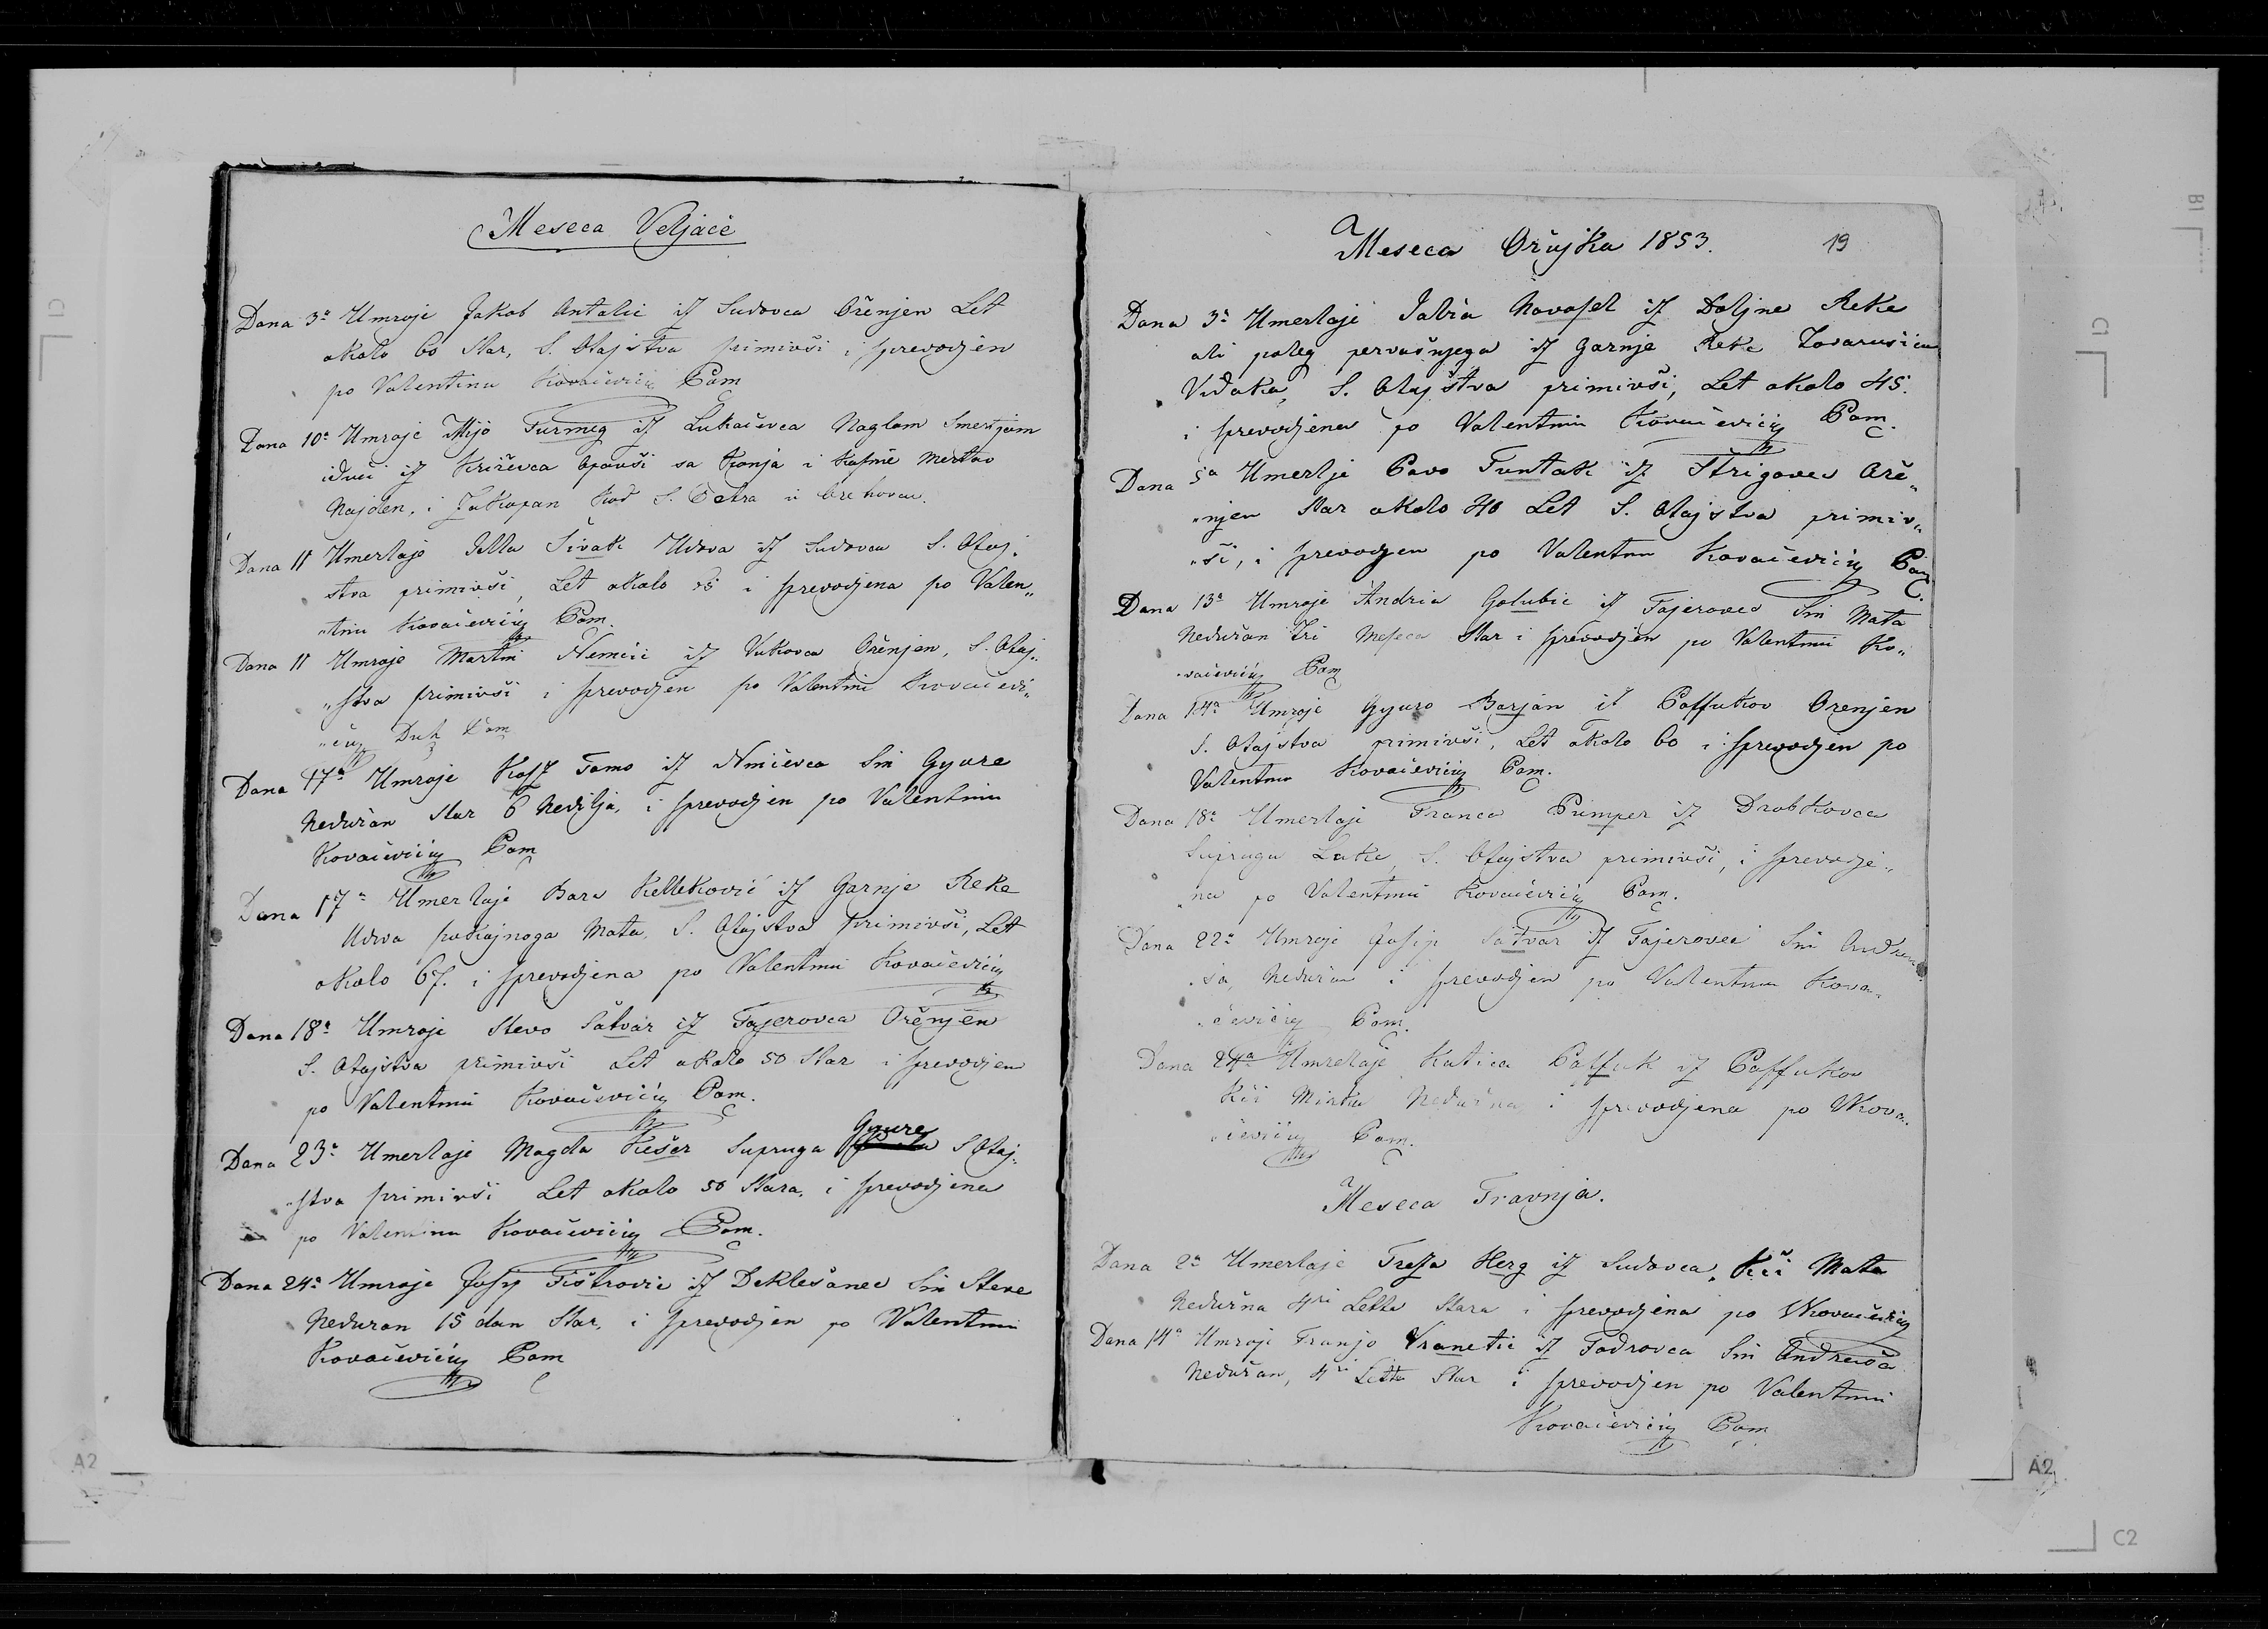 Meseca Veljače
Dana 3a Umroje Jakob Antalic iz Sudovca Oženjen Let
okolo 60 star, S. Otajstva primivši i sprevodjen
po Valentinu Kovačeviću Cam
Dana 10a Umroje Mijo Turmeg iz Lukačevca Naglom Smertjom
iduči iz Križevca opavši sa Konja i Kasnie mertav
Najden, i Zakopan kod S. Petra u Orehovcu.
Dana 11 Umerlaje Jella Šivak Udova iz Sudovca S. Otaj„
stva primivši, Let okolo i sprevodjena po Valen„
„tinu Kovačeviću Cam.
Dana 11 Umroje Martin Nemčić iz Vukovca Oženjen, S. Otaj„
„stva primivši i sprevodjen po Valentinu Kovačevi„
„ću Duh. Cam
Dana 17a Umroje Kosz Tomo iz Nmičevca Sin Gyure
Nedužan star 6 Nedilja, i sprevodjen po Valentinu
Kovačeviću Cam
Dana 17a Umerlaje Bara Kelleković iz Gornje Reke
Udova pokojnoga Mata, S. Otajstva primivši, Let
okolo 67. i sprevodjena po Valentinu Kovačeviću
Dana 18a Umroje Stevo Šatvar iz Tajerovca Oženjen
S. Otajstva primivši Let okolo 50 Star i sprevodjen
po Valentinu Kovačeviću Cam.
Gyure
Dana 23a Umerlaje Magda Kešer Supruga S Otaj„
„stva primivši Let okolo 50 Stara, i sprevodjena
po Valentinu Kovačeviću Cam.
Dana 24a Umroje Josip Tištrović iz Deklešanec Sin Steve
Neduzan 15 dan Star, i sprevodjen po Valentinu
Kovačeviću Cam
Meseca Ožujka 1853. 19
Dana 3a Umerlaje Novosel iz Doljne Reke
ali poleg pervašnjega iz Gornje Reke Tovarušica
Viđaka, S. Otajstva primivši, Let okolo 45.
i sprevodjena po Valentinu Kovačeviću Cam.
Dana 5a Umerlje Pavo Tuntak iz Štrigovec Ože„
„njen Star okolo 40 Let S. Otajstva primiv„
„ši, i sprevodjen po Valentinu Kovačeviću Cam
Dana 13a Umroje Andria Golubic iz Tajerovec Sin Mata
Nedužan tri Meseca Star i sprevodjen po Valentinu Ko„
„vačeviću Cam
Dana 14a Umroje Gyuro Barjan iz Paffukov Ozenjen
S. Otajstva primivši, Let okolo 60 i sprevodjen po
Valentinu Kovačeviću Cam.
Dana 18a Umerlaje Franca Pumper iz Drobkovca
Supruga Luke S. Otajstva primivši, i sprevodje„
„na po Valentinu Kovačeviću Cam.
Dana 22a Umroje Josip Šatvar iz Tajerovec Sin
Nedužan i sprevodjen po Valentinu Kova„
„čeviću Cam.
Dana 24a Umrelaje Katica Paffuk iz Paffukov
Kći Mirka Nedužna i sprevodjena po VKova„
„čeviću Cam.
Meseca Travnja.
Dana 2a Umerlaje Treza Herg iz Sudovca, Kći Mata
Nedužna 4ri Letta Stara i sprevodjena po VKovačeviću
Dana 14a Umroje Franjo Vranetic iz Fodrovca Sin Andraša
Nedužan, 4ri Letta Star i sprevodjen po Valentinu
Kovačeviću Cam
C1
A2
B1
C1
A2
C2